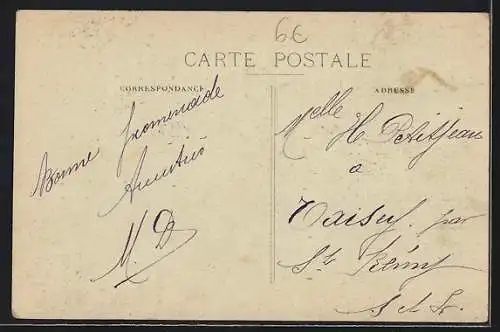 6€
CARTE POSTALE
CORRESPONDANCE
ADRESSE
Bonne promenade
Amitiés
M. D
Melle H. Petitjean
à
Taisey par
St Rémy
S et L.